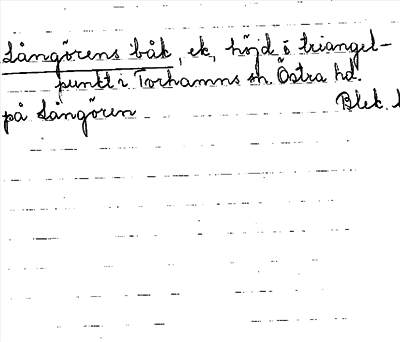 Långörens båk, ek, höjd o triangel-
punkt i Torhamns sn Östra hd.
på Långören Blek. l